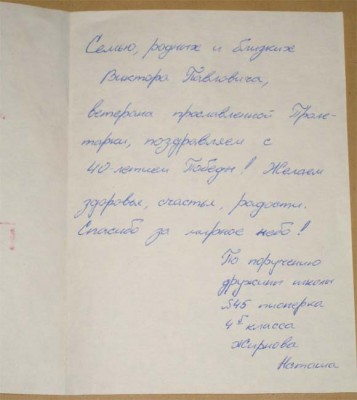 Семью, родных и близких
Виктора Павловича,
ветерана прославленной Проле-
тарки, поздравляем с
40-летием Победы! Желаем
здоровья, счастья, радости.
Спасибо за мирное небо!
По поручению
дружины имени
пионерка
4 б класса
Жирнова
Наташа